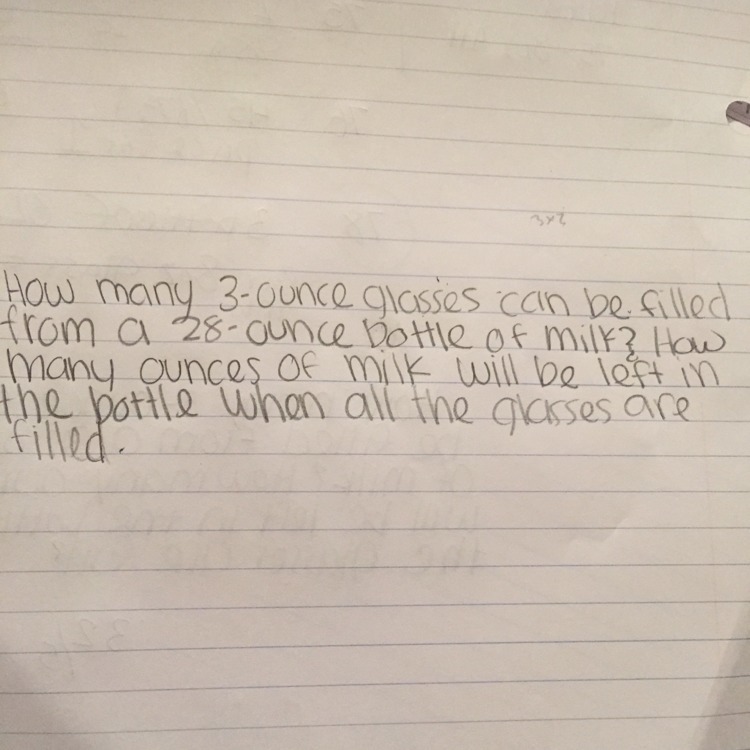 3x2
How many 3-ounce glasses can be filled
from a 28-ounce bottle of milk? How
many ounces of milk will be left in
the bottle when all the glasses are
filled.